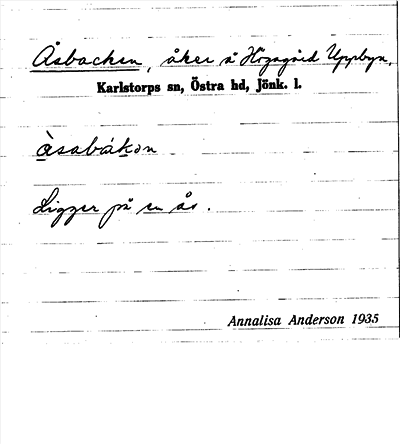 Åsbacken, åker å Högagård Uppbyn,
Karlstorps sn, Östra hd, Jönk. l.
àsabákon
Ligger på en ås.
Annalisa Anderson 1935